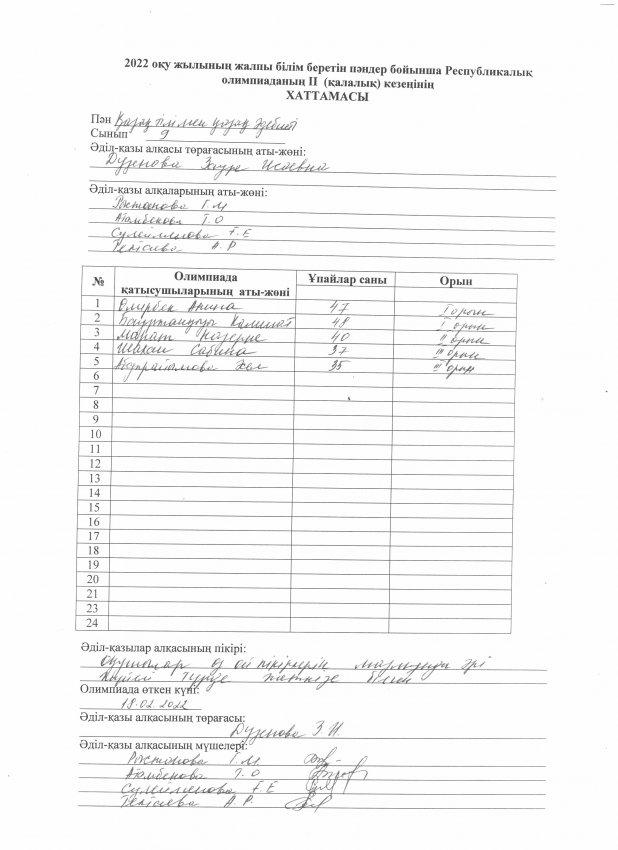 2022 оқу жылының жалпы білім беретін пәндер бойынша Республикалық
олимпиаданың ІІ (қалалық) кезеңінің
ХАТТАМАСЫ
Пән Қазақ тілі мен қазақ әдебиеті
Сынып 9
Әділ-қазы алқасы төрағасының аты-жөні:
Дузенова Исаевна
Әділ-қазы алқаларының аты-жөні:
Рыстанова Г.М
Атамбекова Т.О
Сулейменова Г.Е
А.Р
№ Олимпиада қатысушыларының аты-жөні Ұпайлар саны Орын
1 Өмірбек Амина 47 І орын
2 48 І орын
3 Марат Назерке 40 ІІ орын
4 Сабина 37 ІІІ орын
5 35 ІІІ орын
6
7
8
9
10
11
12
13
14
15
16
17
18
19
20
21
23
24
Әділ-қазылар алқасының пікірі:
Оқушылар өз ой пікірлерін мазмұнды әрі
түрде жеткізе білген
Олимпиада өткен күні:
18.02.2022
Әділ-қазы алқасының төрағасы:
Дузенова З.И.
Әділ-қазы алқасының мүшелері:
Рыстанова Г.М
Атамбекова Т.О
Сулейменова Г.Е
А.Р.